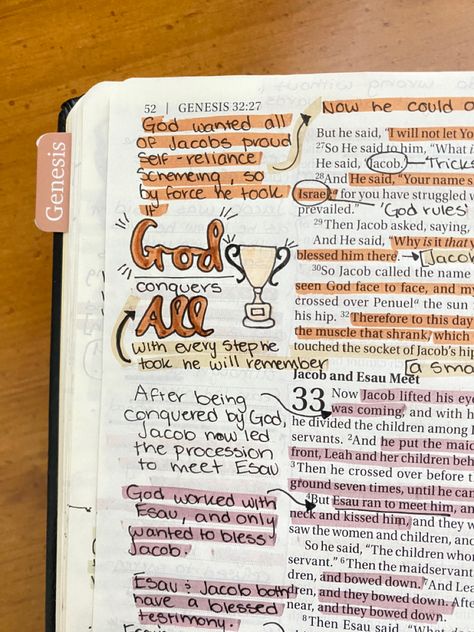 Genesis
52 | GENESIS 32:27
God wanted all
of Jacobs proud
self-reliance
schemeing, so
by force he took
it
God
conquers
All
with every step he
took he will remember
After being
conquered by God,
Jacob now led
the procession
to meet Esau
God worked with
Esau, and only
wanted to bless
Jacob.
Esau & Jacob both
have a blessed
testimony.
Now he could o
But he said, "I will not let Yo
27So He said to him, "What i
He said, "Jacob." "Trick
28And He said, "Your name s
Israel, for you have struggled w
prevailed." "God rules"
29Then Jacob asked, saying,
And He said, "Why is it that y
blessed him there. Jacob
30So Jacob called the name
seen God face to face, and my
crossed over Penuel the sun
his hip. 32Therefore to this day
the muscle that shrank, which
touched the socket of Jacob's hip
a sma
Jacob and Esau Meet
33 Now Jacob lifted his eye
was coming, and with h
he divided the children among
servants. 2And he put the maid
front, Leah and her children beh
3Then he crossed over before t
ground seven times, until he ca
4But Esau ran to meet him, an
neck and kissed him, and they w
saw the women and children, an
So he said, "The children who
servant." 6Then the maidservant
dren, and bowed down. 7And Le
dren, and they bowed down. After
near, and they bowed down.
8Then Esau said, "What do